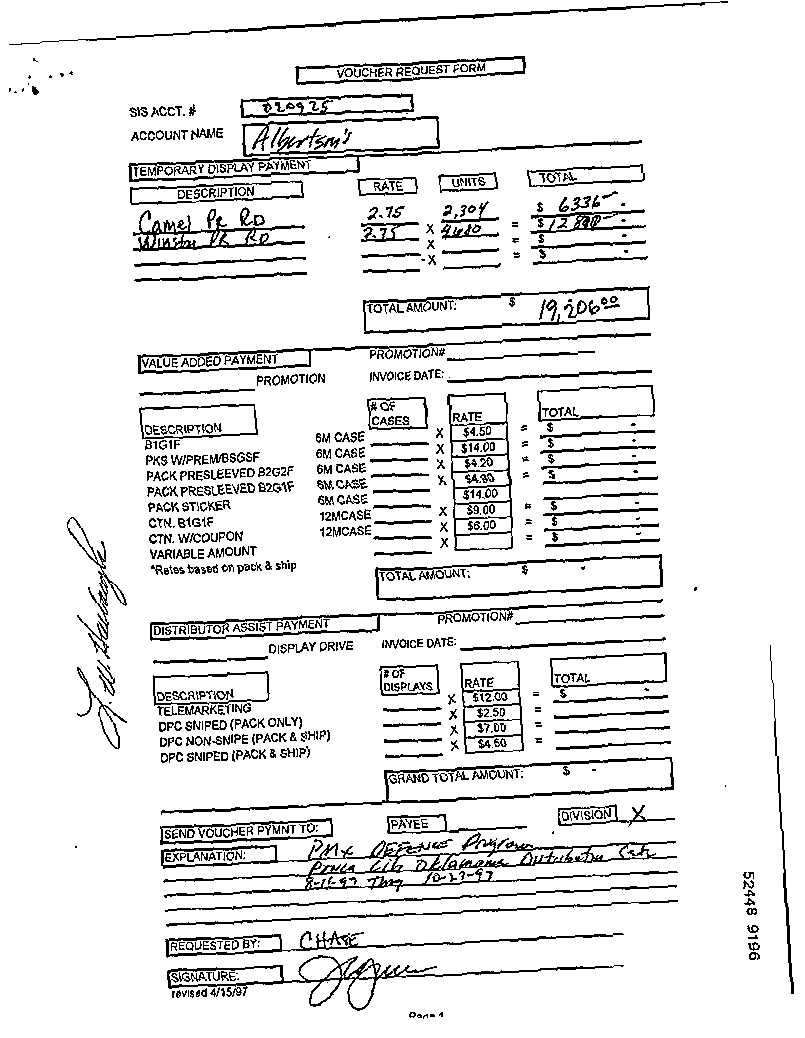 VOUCHER REQUEST FORM
SIS ACCT. # 020925
ACCOUNT NAME Albertson's
TEMPORARY DISPLAY PAYMENT
DESCRIPTION RATE UNITS TOTAL
Camel PR RD 2.75 2,304 $ 6336 -
Winston PR RD 2.75 X 4680 = $ -
X = $ -
- X = $ -
TOTAL AMOUNT: $ 19,206.00
VALUE ADDED PAYMENT PROMOTION#
PROMOTION INVOICE DATE:
DESCRIPTION # OF CASES RATE TOTAL
B1G1F 6M CASE X $4.50 = $ -
PKS W/PREM/BSGSF 6M CASE X $14.00 = $ -
PACK PRESLEEVED B2G2F 6M CASE X $4.20 = $ -
PACK PRESLEEVED B2G1F 6M CASE X $4.90 = $ -
PACK STICKER 6M CASE $14.00
CTN. B1G1F 12MCASE X $9.00 = $ -
CTN. W/COUPON 12MCASE X $6.00 = $ -
VARIABLE AMOUNT X = $ -
*Rates based on pack & ship
TOTAL AMOUNT: $ -
DISTRIBUTOR ASSIST PAYMENT PROMOTION#
DISPLAY DRIVE INVOICE DATE:
DESCRIPTION # OF DISPLAYS RATE TOTAL
TELEMARKETING X $12.00 = $ -
DPC SNIPED (PACK ONLY) X $2.50 =
DPC NON-SNIPE (PACK & SHIP) X $7.00 =
DPC SNIPED (PACK & SHIP) X $4.50 =
GRAND TOTAL AMOUNT: $ -
SEND VOUCHER PYMNT TO: PAYEE DIVISION X
EXPLANATION: PMx DEFENSE Program
Ponca City Oklahoma Distribution
8-11-97 Thru 10-23-97
REQUESTED BY: CHASE
SIGNATURE:
revised 4/15/97
Page 1
52448 9196